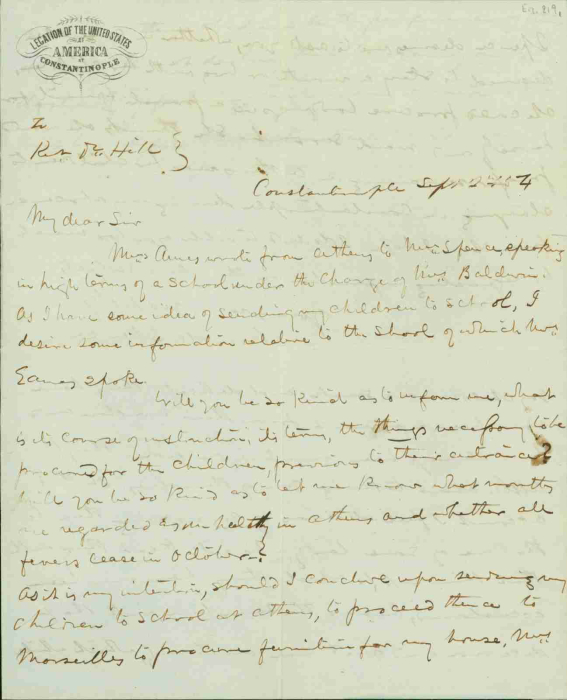 LEGATION OF THE UNITED STATES
OF
AMERICA
AT
CONSTANTINOPLE
to
Rev. Dr. Hill }
Constantinople Sept
My dear Sir
Mrs Eames wrote from athens to Mrs Spence, speaking
in high terms of a School under the charge of Mrs Baldwin.
As I have some idea of sending my children to school, I
desire some information relative to the School of which Mrs
Eames spoke
Will you be so kind as to inform me, what
is its course of instruction, its terms, the things necessary to be
procured for the children previous to their entrance?
Will you be so kind as to let me know what months
are regarded as unhealthy in athens and whether all
fevers cease in October?
As it is my intention, should I conclude upon sending my
children to School at athens, to proceed thence to
Marseilles to procure furniture for my house, Mrs